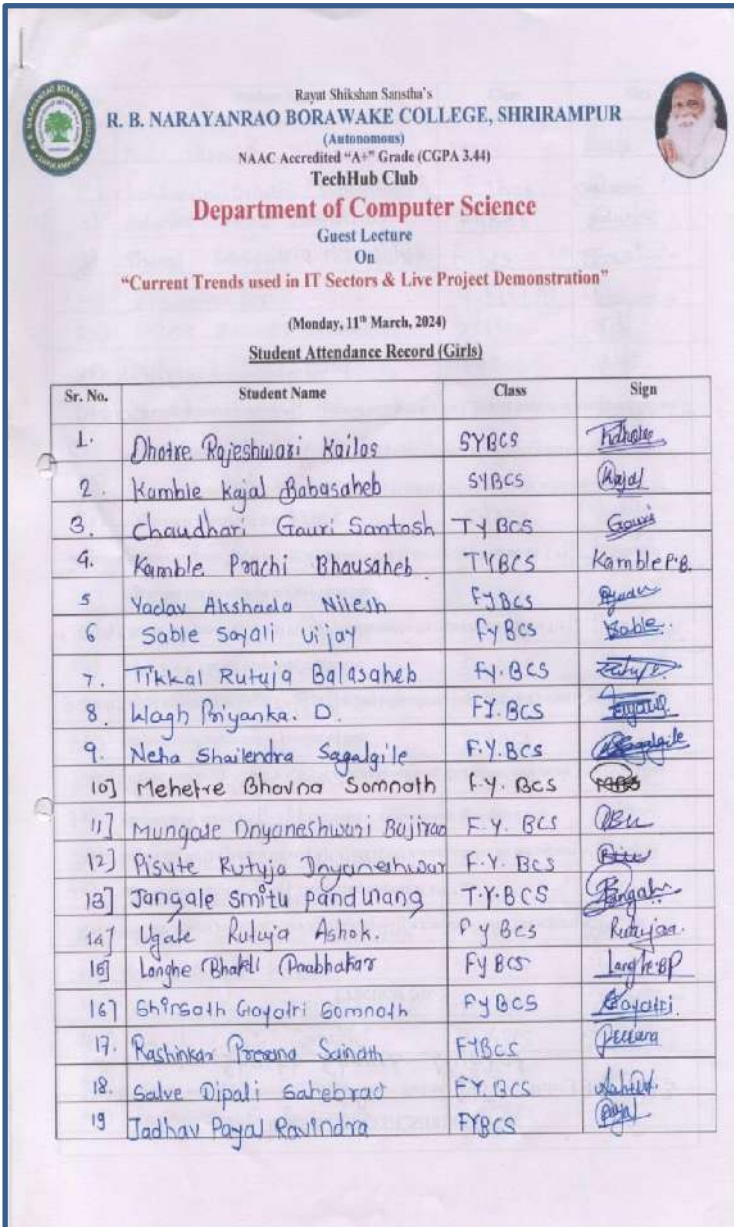 Rayat Shikshan Sanstha's
R. B. NARAYANRAO BORAWAKE COLLEGE, SHRIRAMPUR
(Autonomous)
NAAC Accredited "A+" Grade (CGPA 3.44)
TechHub Club
Department of Computer Science
Guest Lecture
On
"Current Trends used in IT Sectors & Live Project Demonstration"
(Monday, 11th March, 2024)
Student Attendance Record (Girls)
Sr. No. Student Name Class Sign
1. Dhotre Rajeshwari Kailas SYBCS
2. Kamble Kajal Babasaheb SYBCS Kajal
3. Chaudhari Gauri Santosh TYBCS Gauri
4. Kamble Prachi Bhausaheb TYBCS Kamble P.B.
5 Yadav Akshada Nilesh FYBCS
6 Sable Sayali Vijay FyBCS Sable
7. Tikkal Rutuja Balasaheb Fy.BCS
8. Wagh Priyanka. D. FY.BCS
9. Neha Shailendra Sagalgile F.Y.BCS Sagalgile
10] Mehetre Bhavna Somnath F.Y. BCS
11] Mungase Dnyaneshwari Bajirao F.Y. BCS
12] Pisute Rutuja Dnyaneshwar F.Y. BCS
13] Jangale Smita Pandurang T.Y.BCS
14] Ugale Rutuja Ashok. FyBCS Rutujaa.
15] Langhe Bhakti Prabhakar FyBCS Langhe BP
16] Shirsath Gayatri Somnath FyBCS Gayatri
17. Rashinkar Prerana Sainath FYBCS
18. Salve Dipali Sahebrao FY.BCS
19 Jadhav Payal Ravindra FYBCS Payal